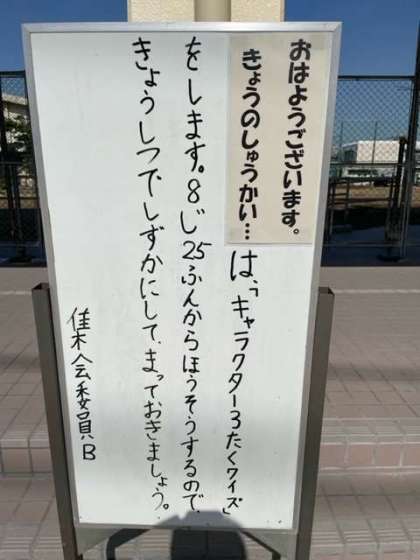 おはようございます。
きょうのしゅうかい…は、「キャラクター3たくクイズ」
をします。8じ25ふんからほうそうするので、
きょうしつでしずかにして、まっておきましょう。
集会委員B